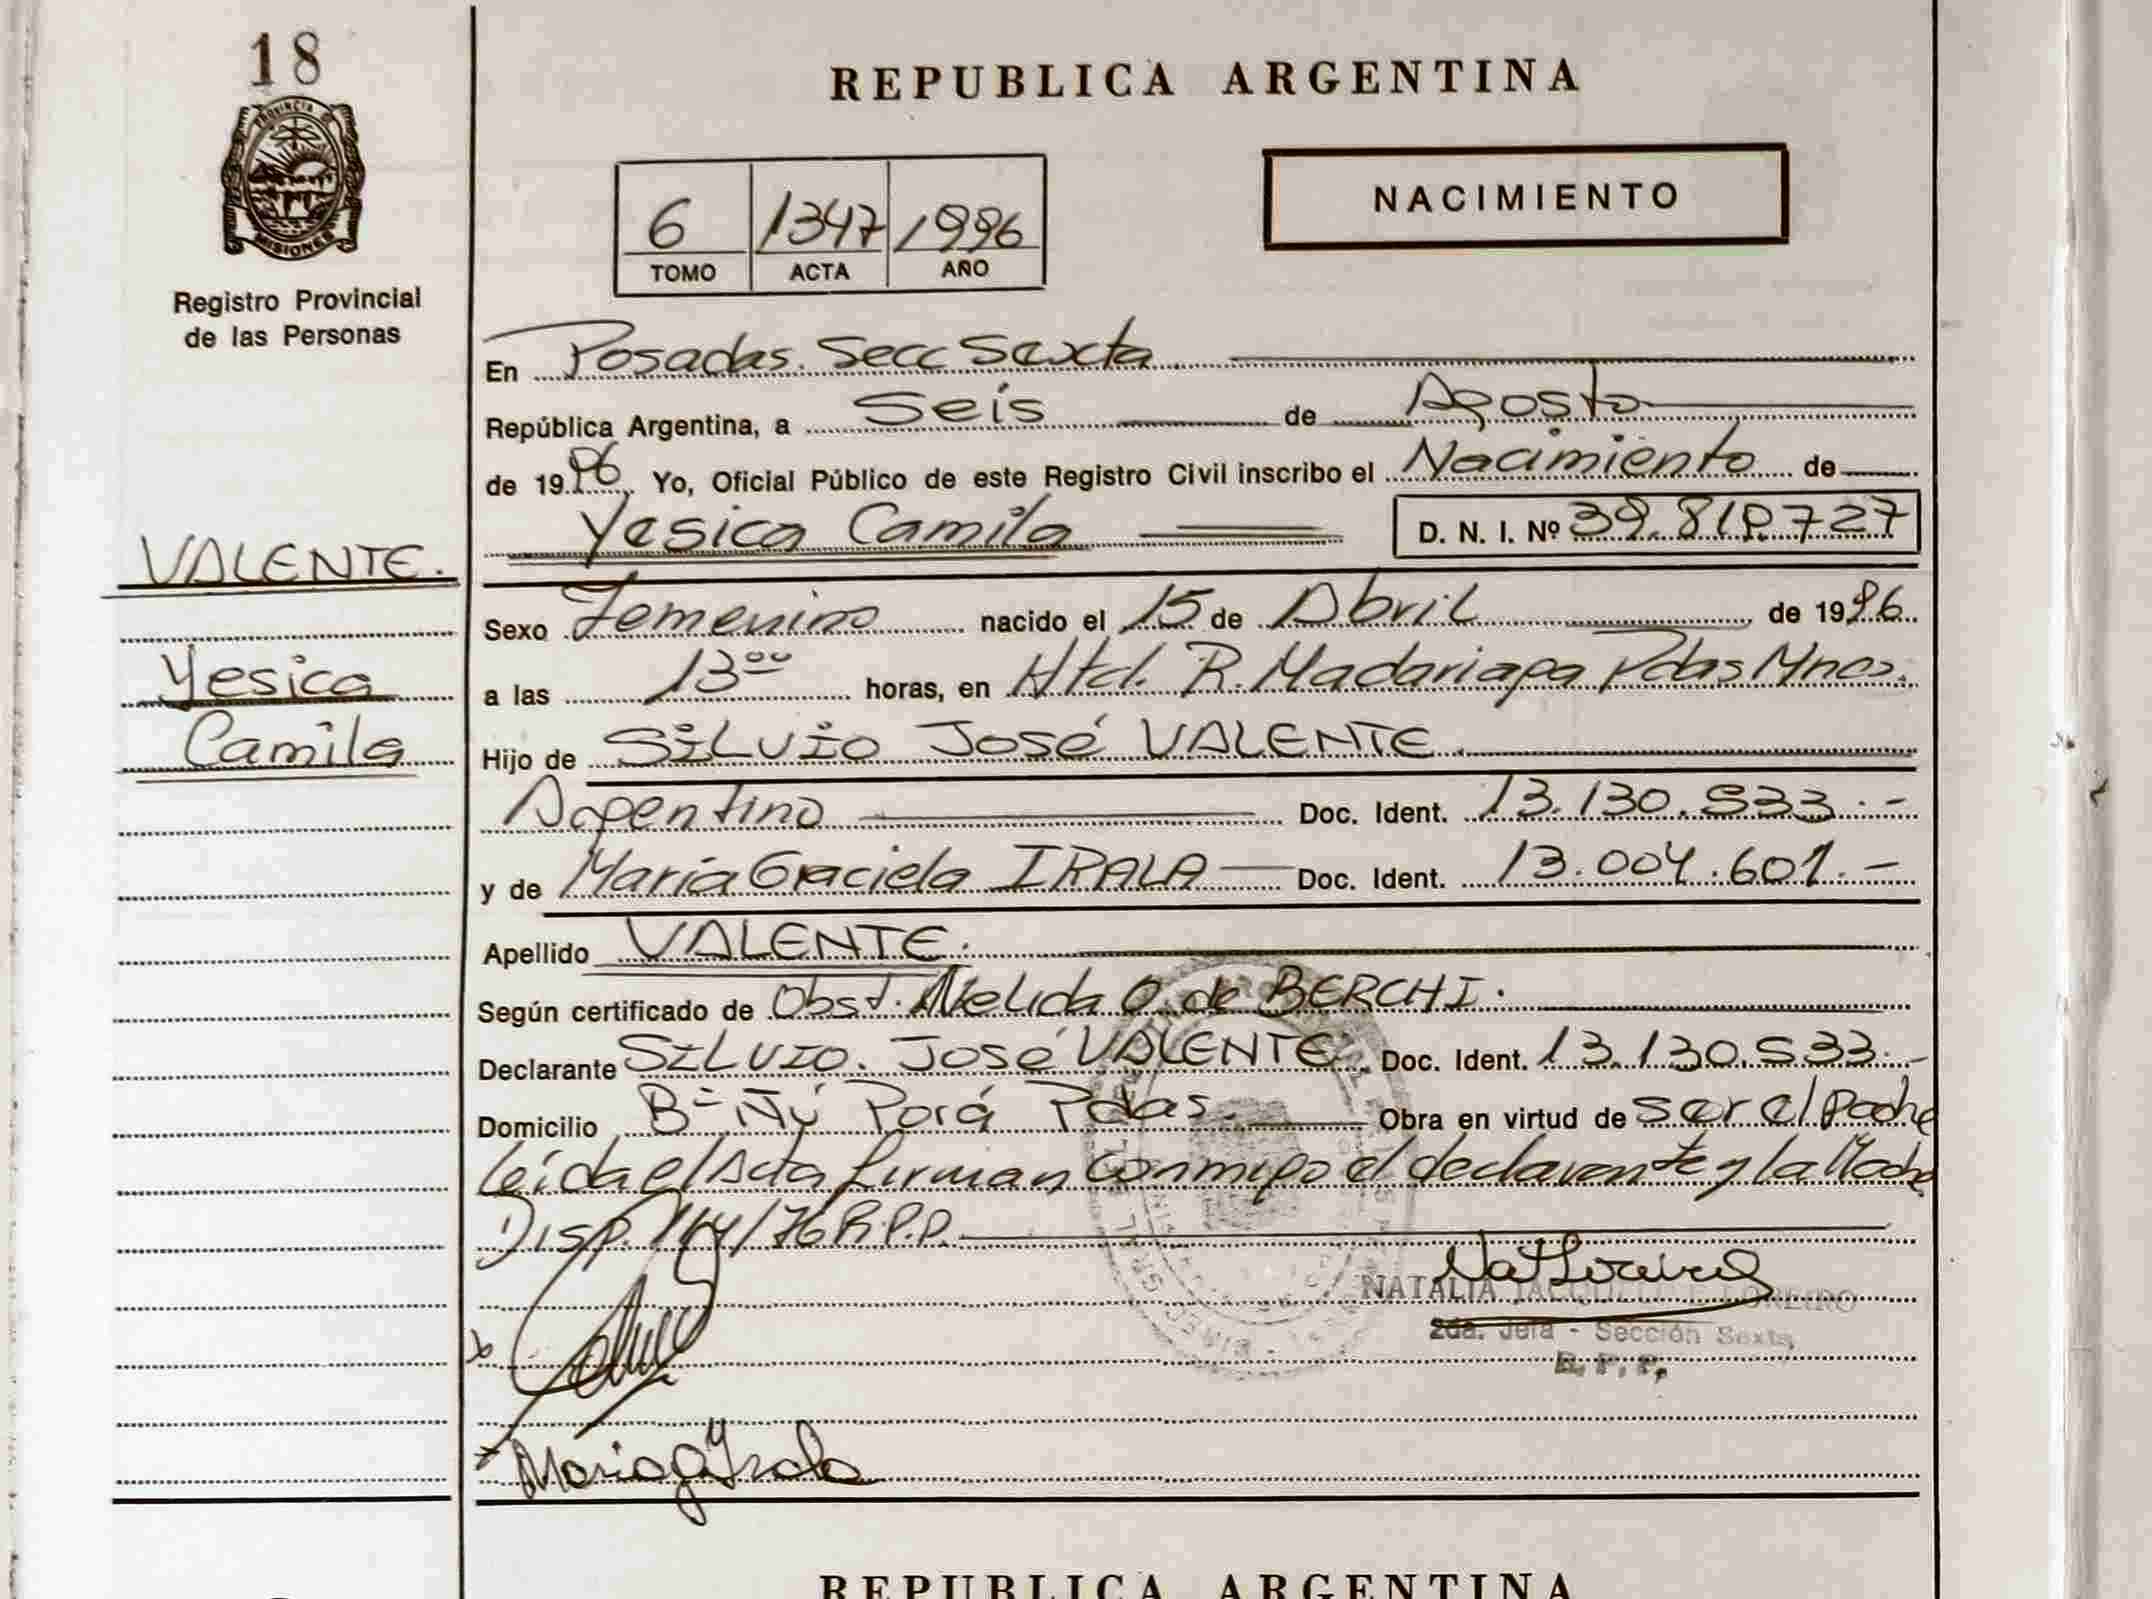 18
PROVINCIA D
MISIONES
Registro Provincial
de las Personas
REPUBLICA ARGENTINA
NACIMIENTO
6 1347 1996
TOMO ACTA AÑO
En Posadas. Secc Sexta
República Argentina, a Seis de Agosto
de 1996 Yo, Oficial Público de este Registro Civil inscribo el Nacimiento de
Yesica Camila D. N. I. Nº 39.818.727
VALENTE.
Yesica
Camila
Sexo Femenino nacido el 15 de Abril de 1996.
a las 13 00 horas, en Htal. R. Madariaga Pdas Mnes.
Hijo de SiLVio José VALENTE.
Argentino Doc. Ident. 13.130.533.-
y de María Graciela IRALA Doc. Ident. 13.004.601.-
Apellido VALENTE.
Según certificado de Obst. Nelida O. de BERCHI.
Declarante SILVIO. José VALENTE Doc. Ident. 13.130.533.-
Domicilio Bº Ñú Porá Pdas. Obra en virtud de ser el padre
leída el Acta firman conmigo el declarante y la Madre
Disp. 164/76 R.P.P.
NATALIA LOREIRO
2da. Jefa - Sección Sexta
R.P.P.
Maria G Irala
REPUBLICA ARGENTINA